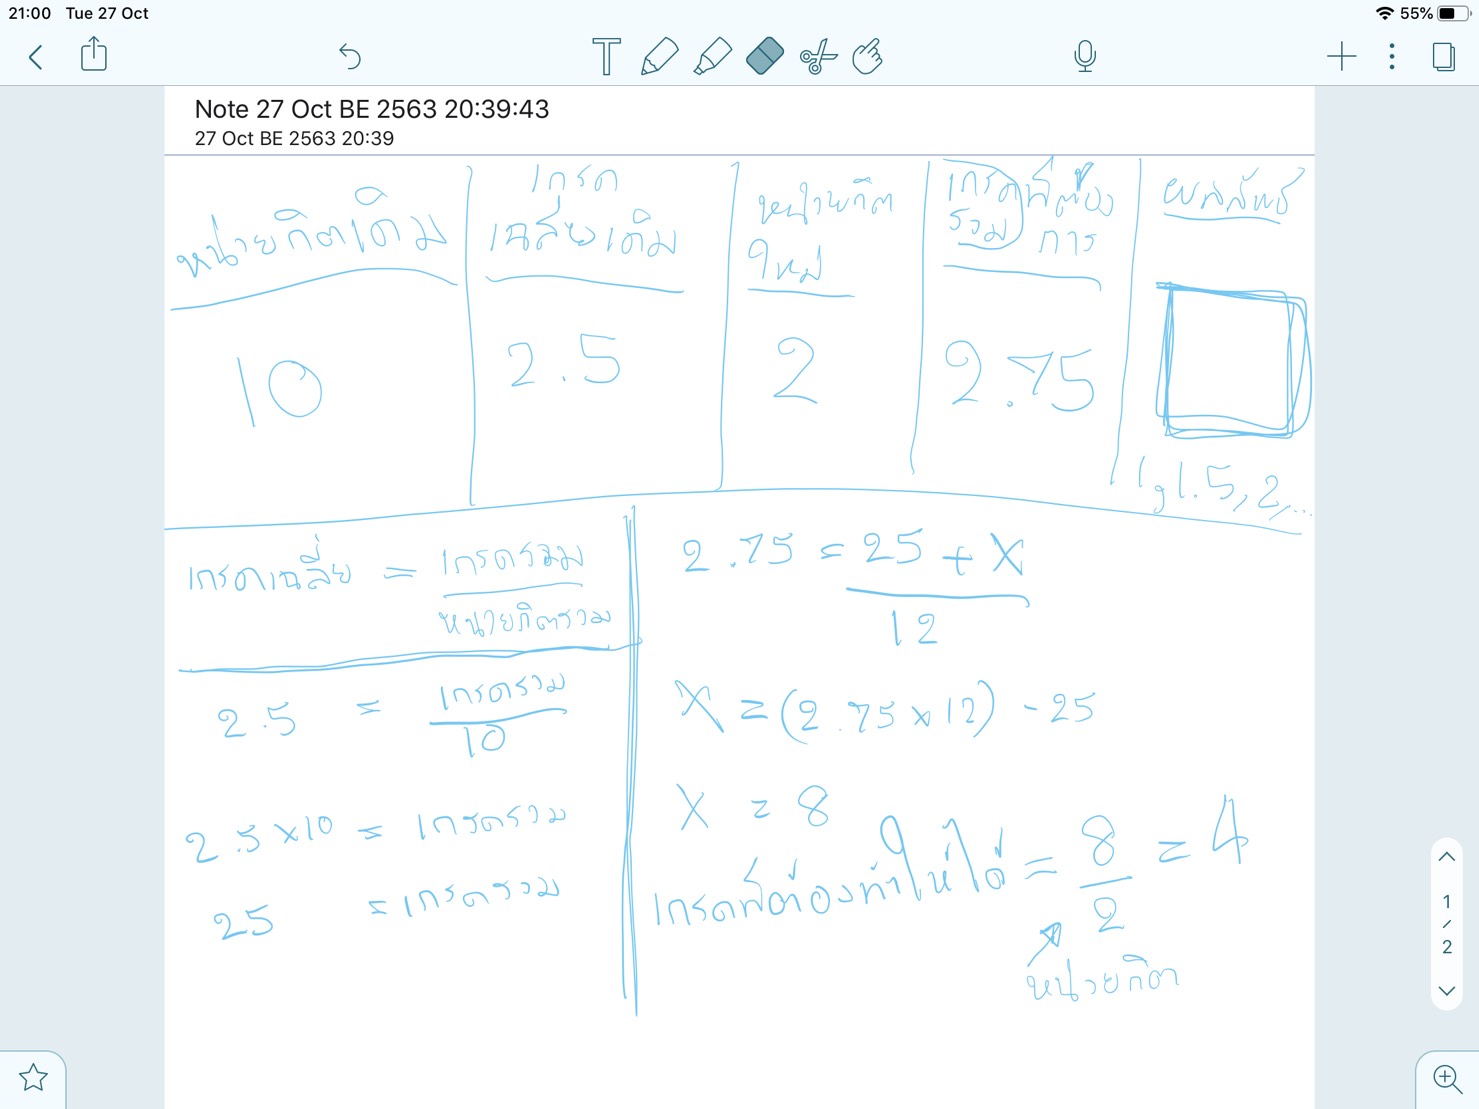 21:00 Tue 27 Oct
55%
Note 27 Oct BE 2563 20:39:43
27 Oct BE 2563 20:39
หน่วยกิตเดิม
เกรด
เฉลี่ยเดิม
หน่วยกิต
ใหม่
เกรดที่ต้อง
รวม การ
ผลลัพธ์
10
2.5
2
2.75
1, 1.5, 2, ...
เกรดเฉลี่ย = เกรดรวม
หน่วยกิตรวม
2.5 = เกรดรวม
10
2.5 x 10 = เกรดรวม
25 = เกรดรวม
2.75 = 25 + X
12
X = (2.75 x 12) - 25
X = 8
เกรดที่ต้องทำให้ได้ = 8 = 4
2
หน่วยกิต
1
/
2